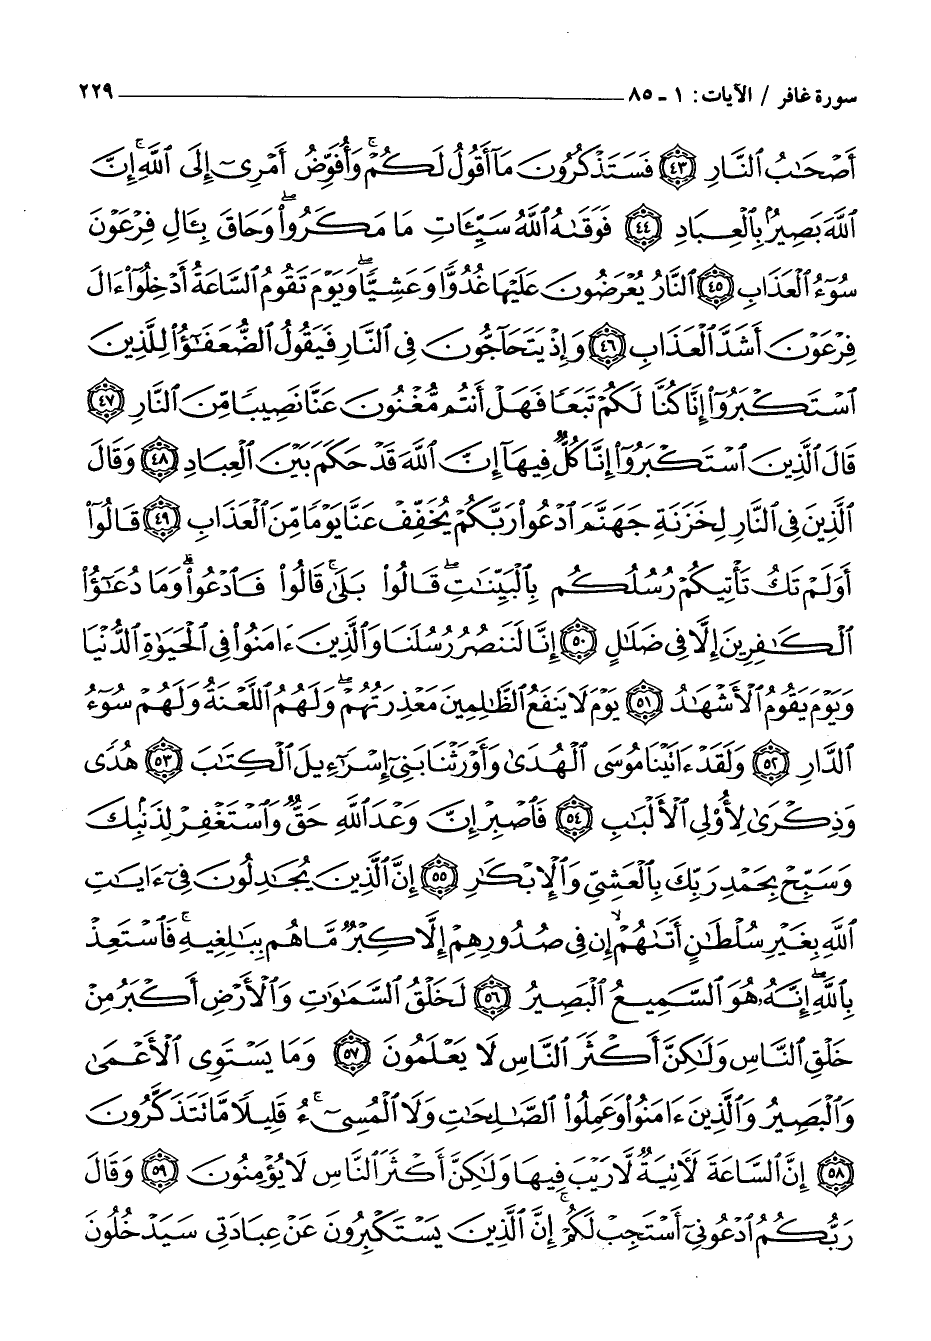 سورة غافر / الآيات: ١ - ٨٥ ٢٢٩
أَصْحَٰبُ ٱلنَّارِ ﴿٤٣﴾ فَسَتَذْكُرُونَ مَآ أَقُولُ لَكُمْ ۚ وَأُفَوِّضُ أَمْرِىٓ إِلَى ٱللَّهِ ۚ إِنَّ
ٱللَّهَ بَصِيرٌۢ بِٱلْعِبَادِ ﴿٤٤﴾ فَوَقَىٰهُ ٱللَّهُ سَيِّـَٔاتِ مَا مَكَرُوا۟ ۖ وَحَاقَ بِـَٔالِ فِرْعَوْنَ
سُوٓءُ ٱلْعَذَابِ ﴿٤٥﴾ ٱلنَّارُ يُعْرَضُونَ عَلَيْهَا غُدُوًّا وَعَشِيًّا ۖ وَيَوْمَ تَقُومُ ٱلسَّاعَةُ أَدْخِلُوٓا۟ ءَالَ
فِرْعَوْنَ أَشَدَّ ٱلْعَذَابِ ﴿٤٦﴾ وَإِذْ يَتَحَآجُّونَ فِى ٱلنَّارِ فَيَقُولُ ٱلضُّعَفَٰٓؤُا۟ لِلَّذِينَ
ٱسْتَكْبَرُوٓا۟ إِنَّا كُنَّا لَكُمْ تَبَعًا فَهَلْ أَنتُم مُّغْنُونَ عَنَّا نَصِيبًا مِّنَ ٱلنَّارِ ﴿٤٧﴾
قَالَ ٱلَّذِينَ ٱسْتَكْبَرُوٓا۟ إِنَّا كُلٌّ فِيهَآ إِنَّ ٱللَّهَ قَدْ حَكَمَ بَيْنَ ٱلْعِبَادِ ﴿٤٨﴾ وَقَالَ
ٱلَّذِينَ فِى ٱلنَّارِ لِخَزَنَةِ جَهَنَّمَ ٱدْعُوا۟ رَبَّكُمْ يُخَفِّفْ عَنَّا يَوْمًا مِّنَ ٱلْعَذَابِ ﴿٤٩﴾ قَالُوٓا۟
أَوَلَمْ تَكُ تَأْتِيكُمْ رُسُلُكُم بِٱلْبَيِّنَٰتِ ۖ قَالُوا۟ بَلَىٰ ۚ قَالُوا۟ فَٱدْعُوا۟ ۗ وَمَا دُعَٰٓؤُا۟
ٱلْكَٰفِرِينَ إِلَّا فِى ضَلَٰلٍ ﴿٥٠﴾ إِنَّا لَنَنصُرُ رُسُلَنَا وَٱلَّذِينَ ءَامَنُوا۟ فِى ٱلْحَيَوٰةِ ٱلدُّنْيَا
وَيَوْمَ يَقُومُ ٱلْأَشْهَٰدُ ﴿٥١﴾ يَوْمَ لَا يَنفَعُ ٱلظَّٰلِمِينَ مَعْذِرَتُهُمْ ۖ وَلَهُمُ ٱللَّعْنَةُ وَلَهُمْ سُوٓءُ
ٱلدَّارِ ﴿٥٢﴾ وَلَقَدْ ءَاتَيْنَا مُوسَى ٱلْهُدَىٰ وَأَوْرَثْنَا بَنِىٓ إِسْرَٰٓءِيلَ ٱلْكِتَٰبَ ﴿٥٣﴾ هُدًى
وَذِكْرَىٰ لِأُو۟لِى ٱلْأَلْبَٰبِ ﴿٥٤﴾ فَٱصْبِرْ إِنَّ وَعْدَ ٱللَّهِ حَقٌّ وَٱسْتَغْفِرْ لِذَنۢبِكَ
وَسَبِّحْ بِحَمْدِ رَبِّكَ بِٱلْعَشِىِّ وَٱلْإِبْكَٰرِ ﴿٥٥﴾ إِنَّ ٱلَّذِينَ يُجَٰدِلُونَ فِىٓ ءَايَٰتِ
ٱللَّهِ بِغَيْرِ سُلْطَٰنٍ أَتَىٰهُمْ ۙ إِن فِى صُدُورِهِمْ إِلَّا كِبْرٌ مَّا هُم بِبَٰلِغِيهِ ۚ فَٱسْتَعِذْ
بِٱللَّهِ ۖ إِنَّهُۥ هُوَ ٱلسَّمِيعُ ٱلْبَصِيرُ ﴿٥٦﴾ لَخَلْقُ ٱلسَّمَٰوَٰتِ وَٱلْأَرْضِ أَكْبَرُ مِنْ
خَلْقِ ٱلنَّاسِ وَلَٰكِنَّ أَكْثَرَ ٱلنَّاسِ لَا يَعْلَمُونَ ﴿٥٧﴾ وَمَا يَسْتَوِى ٱلْأَعْمَىٰ
وَٱلْبَصِيرُ وَٱلَّذِينَ ءَامَنُوا۟ وَعَمِلُوا۟ ٱلصَّٰلِحَٰتِ وَلَا ٱلْمُسِىٓءُ ۚ قَلِيلًا مَّا تَتَذَكَّرُونَ
﴿٥٨﴾ إِنَّ ٱلسَّاعَةَ لَءَاتِيَةٌ لَّا رَيْبَ فِيهَا وَلَٰكِنَّ أَكْثَرَ ٱلنَّاسِ لَا يُؤْمِنُونَ ﴿٥٩﴾ وَقَالَ
رَبُّكُمُ ٱدْعُونِىٓ أَسْتَجِبْ لَكُمْ ۚ إِنَّ ٱلَّذِينَ يَسْتَكْبِرُونَ عَنْ عِبَادَتِى سَيَدْخُلُونَ